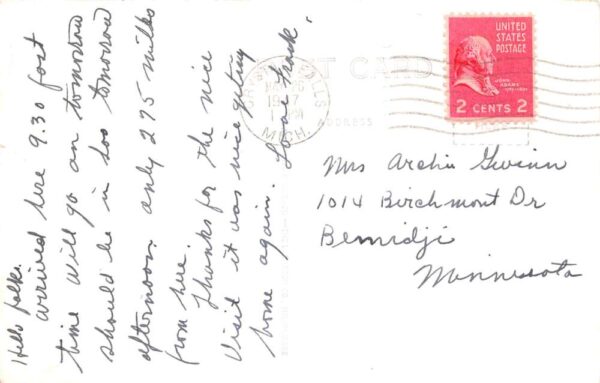 Hello folks.
arrived here 9.30 fast
time will go on tomorrow
should be in Soo tomorrow
afternoon. only 275 miles
from here.
Thanks for the nice
visit it was nice getting
home again. Love
POST CARD
ADDRESS
CRYSTAL FALLS
1947
MICH.
UNITED
STATES
POSTAGE
JOHN
ADAMS
2 CENTS 2
Mrs Archie Gwinn
1014 Birchmont Dr
Bemidji
Minnesota